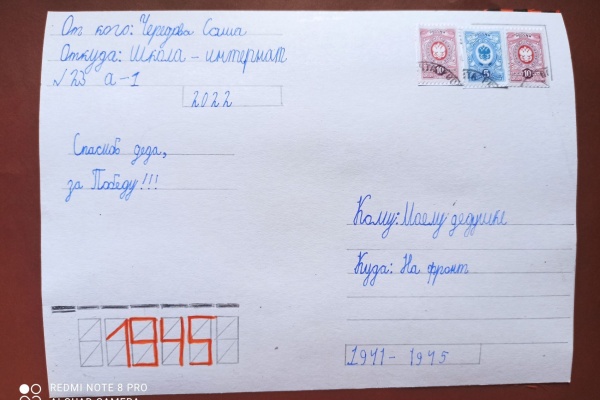 От кого: Чередова Саша
Откуда: Школа - интернат
№23 а-1
2022
10
5
10
Спасибо деда,
за Победу!!!
Кому: Моему дедушке
Куда: На фронт
1945
1941 - 1945
REDMI NOTE 8 PRO